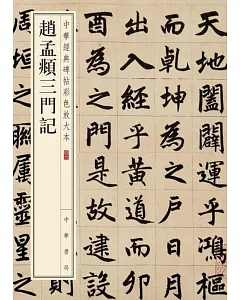 天地闔闢運乎鴻樞
而乾坤為之戶日月
出入經乎黃道而卯
酉為之門是故建設
中華經典碑帖彩色放大本
趙孟頫三門記
中華書局
周垣之聯屬靈星之